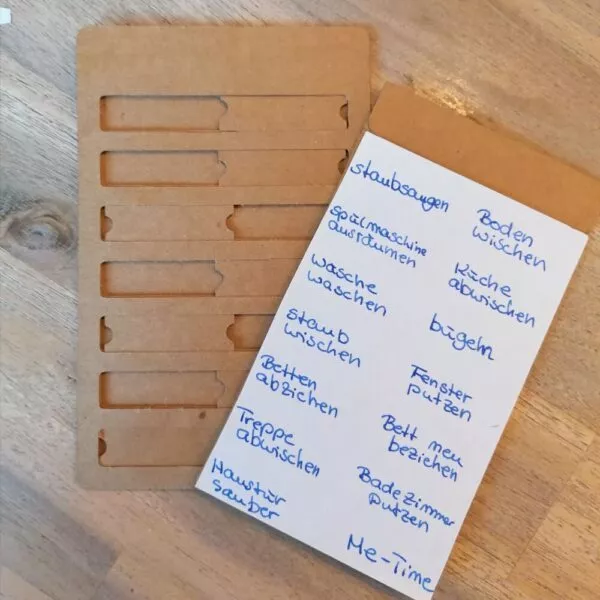 staubsaugen
Boden
wischen
Spülmaschine
ausräumen
Küche
abwischen
wäsche
waschen
bügeln
staub
wischen
Fenster
putzen
Betten
abziehen
Bett neu
beziehen
Treppe
abwischen
Badezimmer
putzen
Haustür
sauber
Me-Time